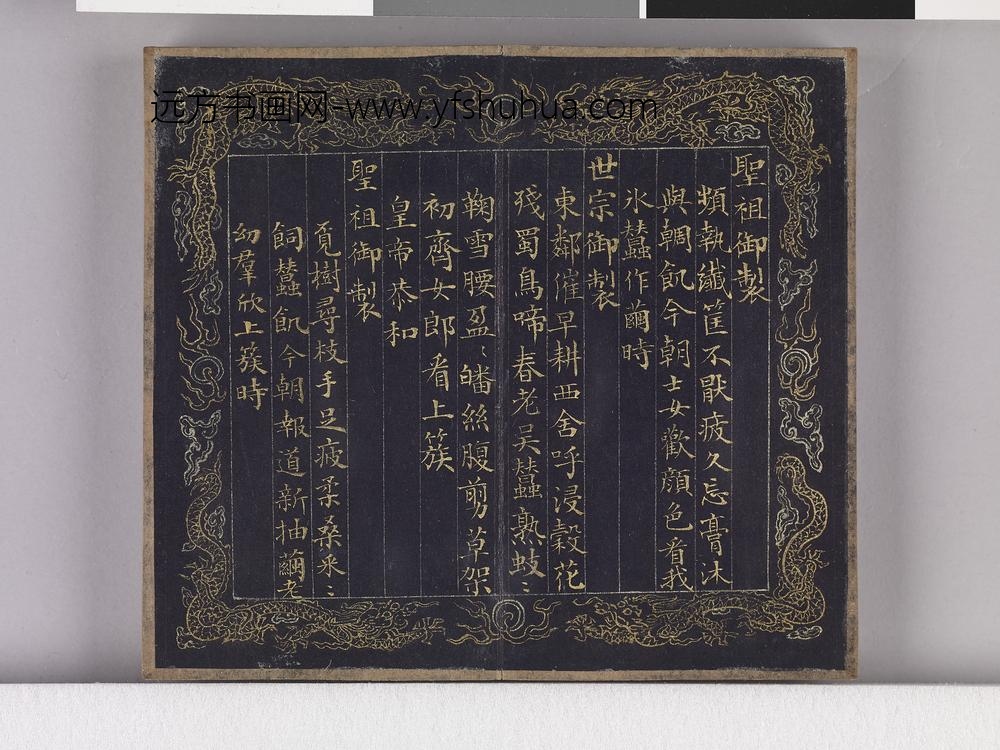 远方书画网-www.yfshuhua.com
聖祖御製
頻執纖筐不厭疲久忘膏沐
與輖飢今朝士女歡顏色看我
氷蠶作繭時
世宗御製
東鄰催早耕西舍呼浸穀花
殘蜀鳥啼春老吳蠶熟蚑〻
鞠雪腰盈〻皤絲腹剪草架
初齊女郎看上簇
皇帝恭和
聖祖御製
覓樹尋枝手足疲柔桑采〻
飼蠶飢今朝報道新抽繭老
幼羣欣上簇時